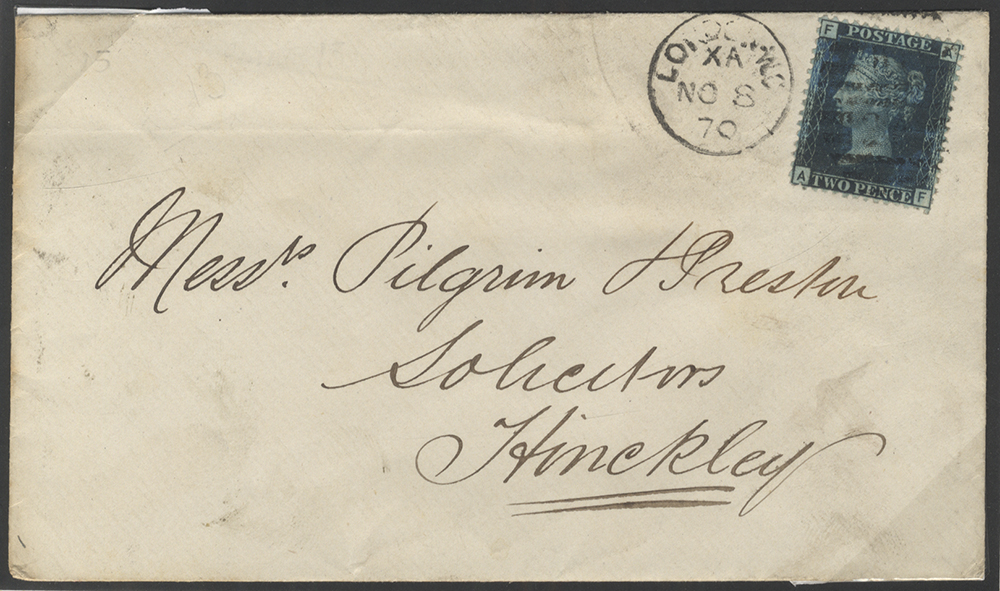 LONDON.W.C
XA
NO 8
70
F POSTAGE A
A TWO PENCE F
Messrs. Pilgrim & Preston
Solicitors
Hinckley